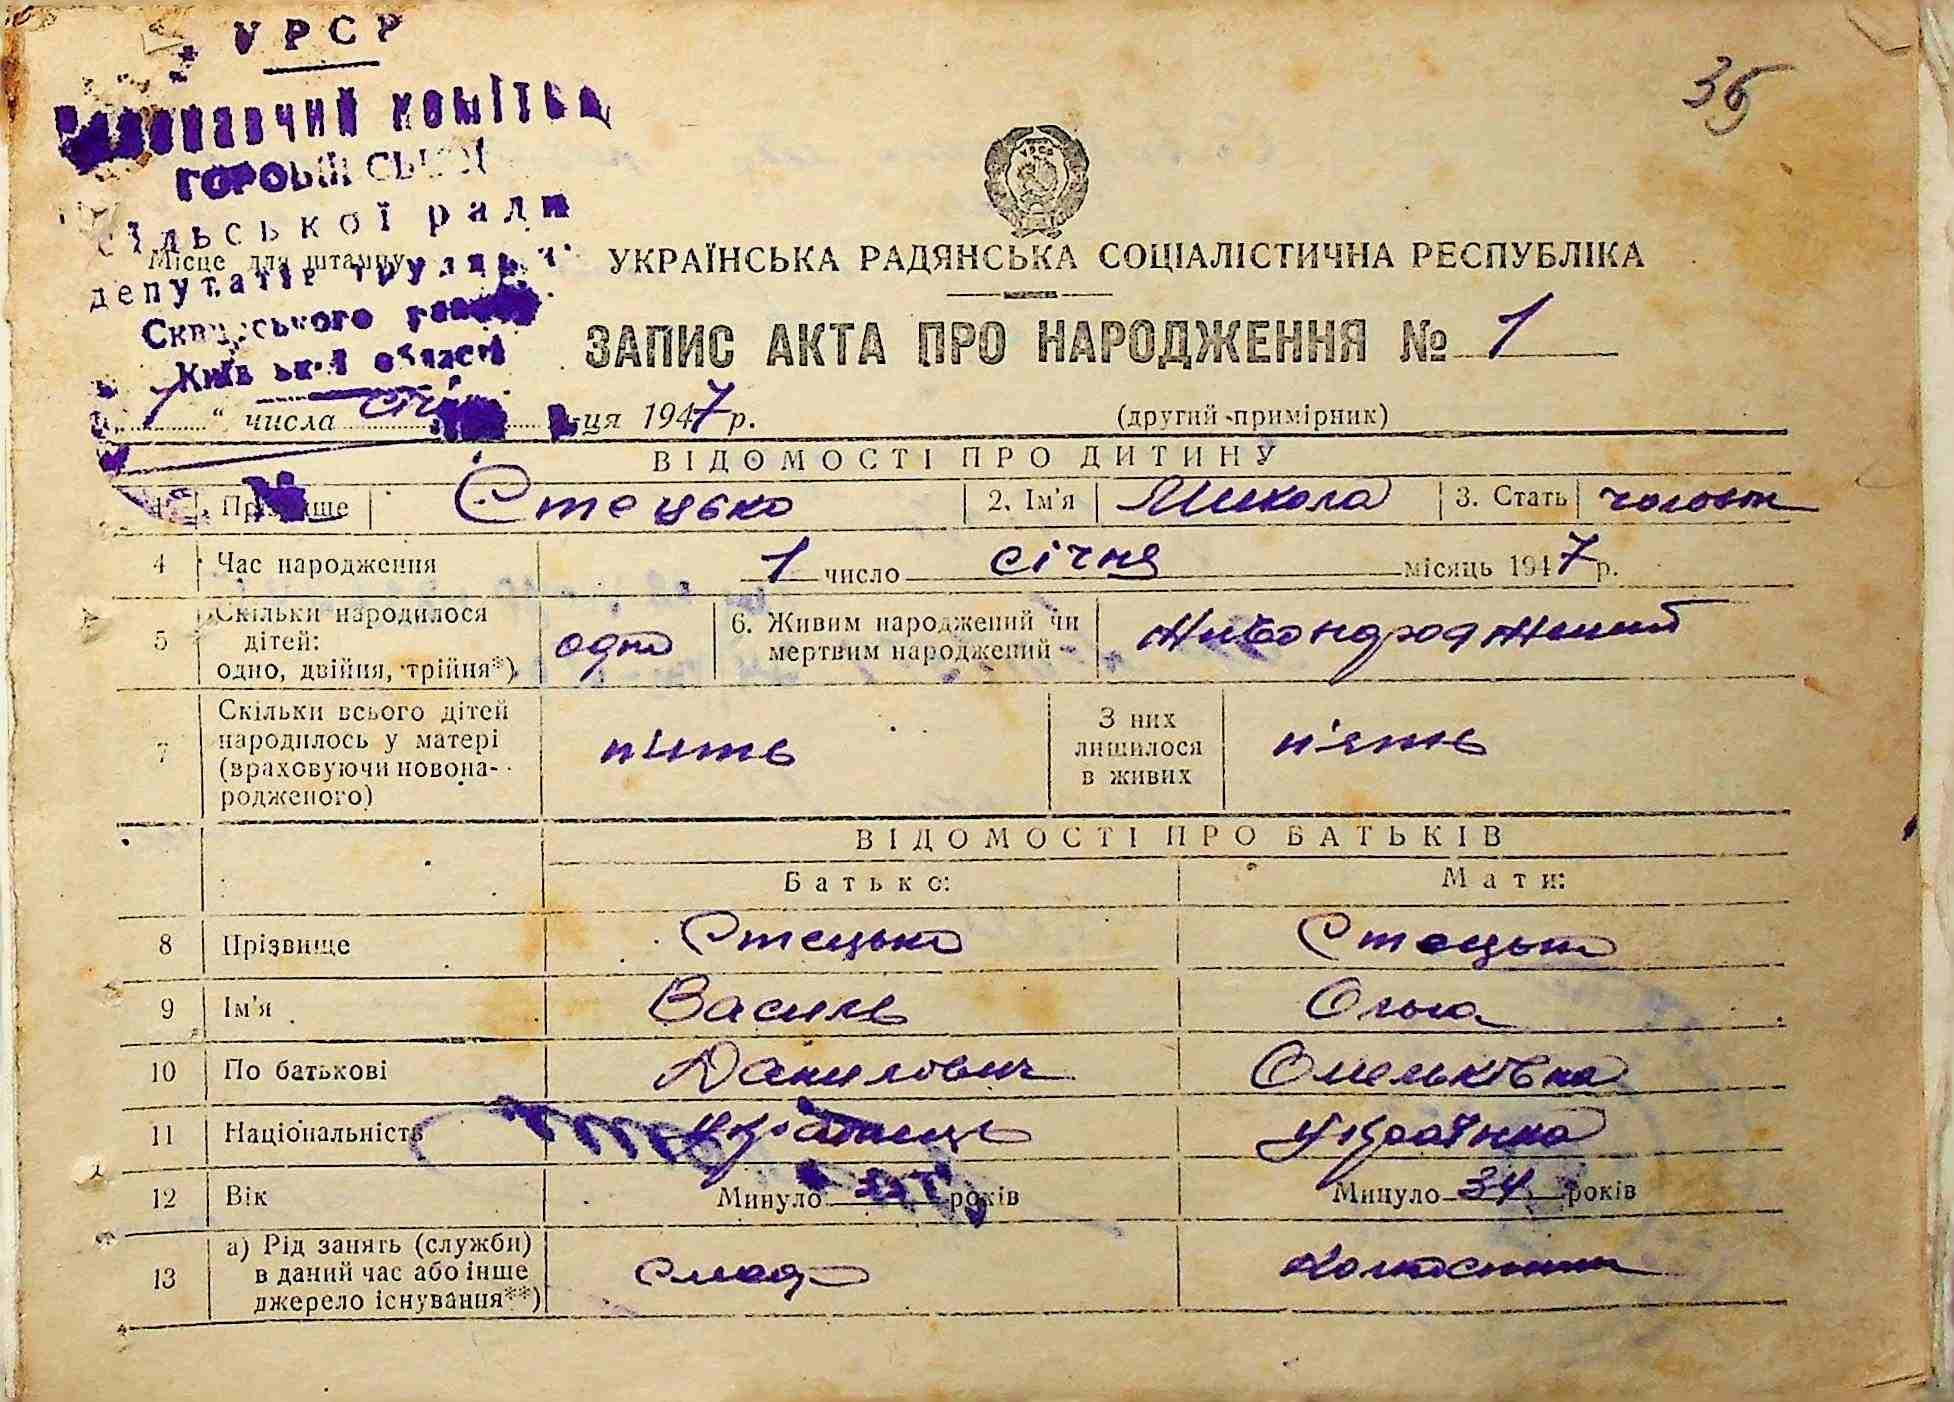 УРСР
Виконавчий комітет
ської
сільської ради
депутатів трудящих
Сквирського району
Київської області
Місце для штампу
36
УРСР
УКРАЇНСЬКА РАДЯНСЬКА СОЦІАЛІСТИЧНА РЕСПУБЛІКА
ЗАПИС АКТА ПРО НАРОДЖЕННЯ № 1
„1“ числа січня місяця 1947 р. (другий примірник)
ВІДОМОСТІ ПРО ДИТИНУ
1. Прізвище Стецько 2. Ім'я Микола 3. Стать чоловіч
4 Час народження 1 число січня місяць 1947 р.
5 Скільки народилося дітей: одно, двійня, трійня*) одно 6. Живим народжений чи мертвим народжений живонароджений
7 Скільки всього дітей народилось у матері (враховуючи новонародженого) п'ять З них лишилося в живих п'ять
ВІДОМОСТІ ПРО БАТЬКІВ
Батько: Мати:
8 Прізвище Стецько Стецько
9 Ім'я Василь Ольга
10 По батькові Данилович Омельківна
11 Національність українець українка
12 Вік Минуло років Минуло 34 років
13 а) Рід занять (служби) в даний час або інше джерело існування**)